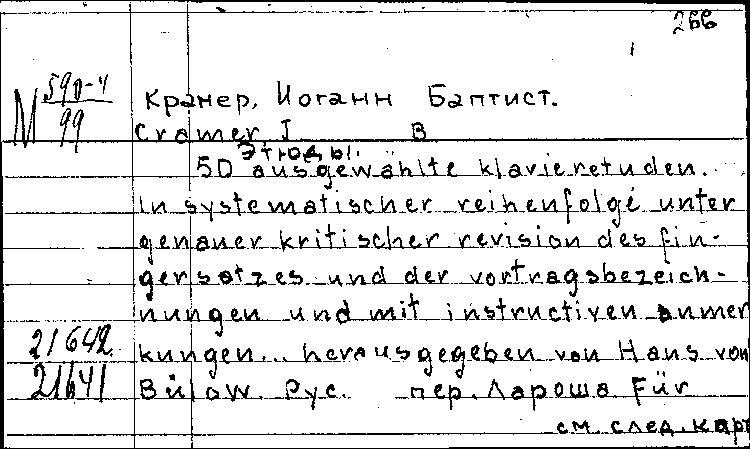 266
М 590-4
99
Крамер, Иоганн Баптист.
Cramer J B
Этюды.
50 ausgewählte klavieretuden.
In systematischer reihenfolge unter
genauer kritischer revision des fin-
gersatzes und der vortragsbezeich-
nungen und mit instructiven anmer
21642 kungen... herausgegeben von Hans von
21641 Bülow. Рус. пер. Лароша Für
см. след. карт